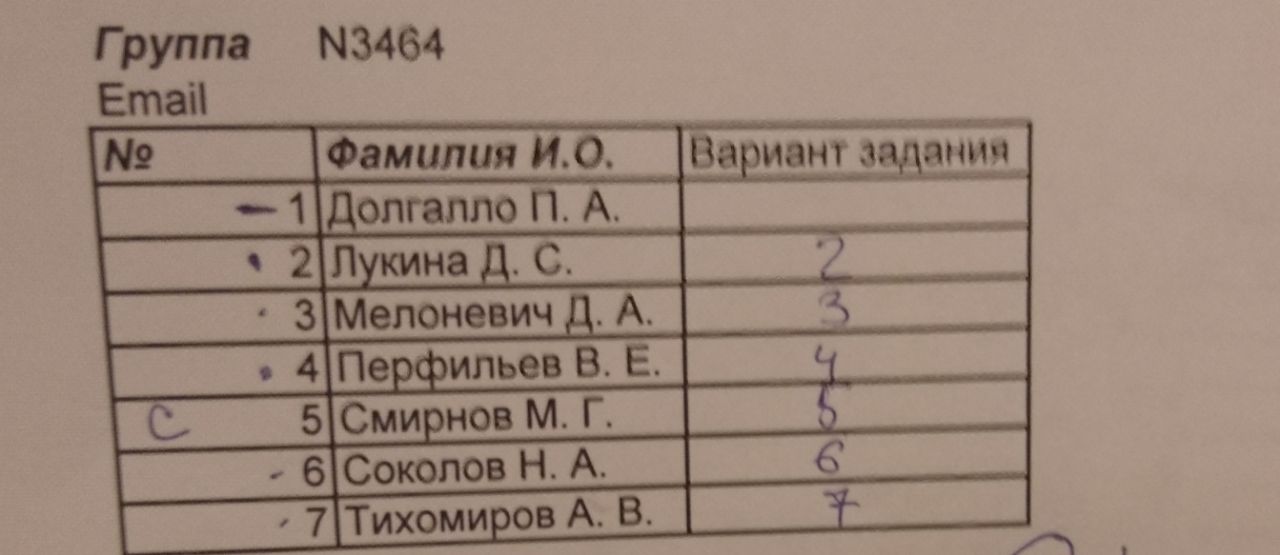 Группа N3464
Email
№ Фамилия И.О. Вариант задания
1 Долгалло П. А.
2 Лукина Д. С. 2
3 Мелоневич Д. А. 3
4 Перфильев В. Е. 4
С 5 Смирнов М. Г. 5
6 Соколов Н. А. 6
7 Тихомиров А. В. 7